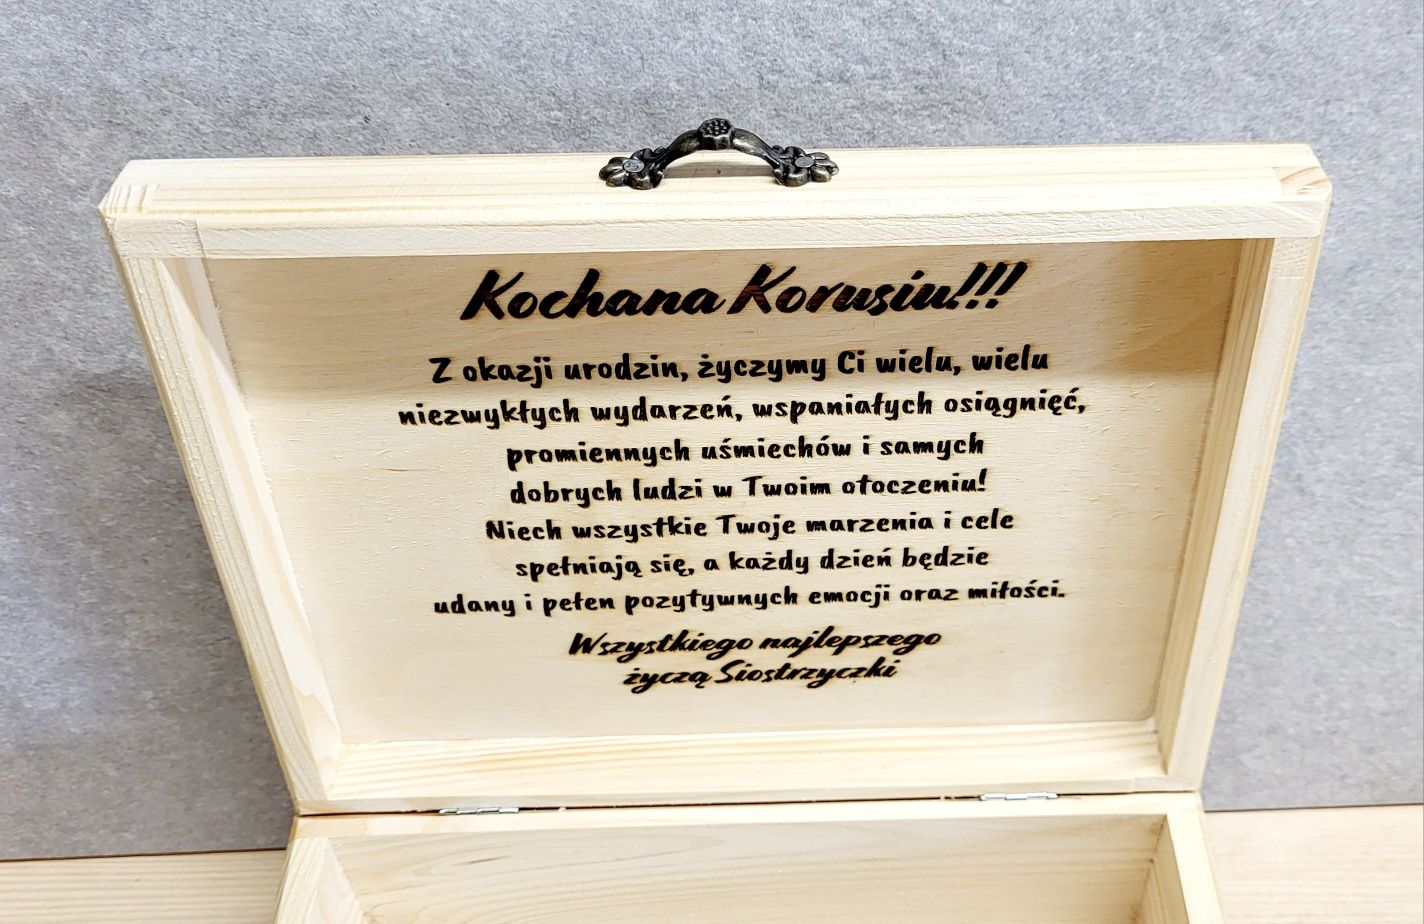 Kochana Korusiu!!!
Z okazji urodzin, życzymy Ci wielu, wielu
niezwykłych wydarzeń, wspaniałych osiągnięć,
promiennych uśmiechów i samych
dobrych ludzi w Twoim otoczeniu!
Niech wszystkie Twoje marzenia i cele
spełniają się, a każdy dzień będzie
udany i pełen pozytywnych emocji oraz miłości.
Wszystkiego najlepszego
życzą Siostrzyczki